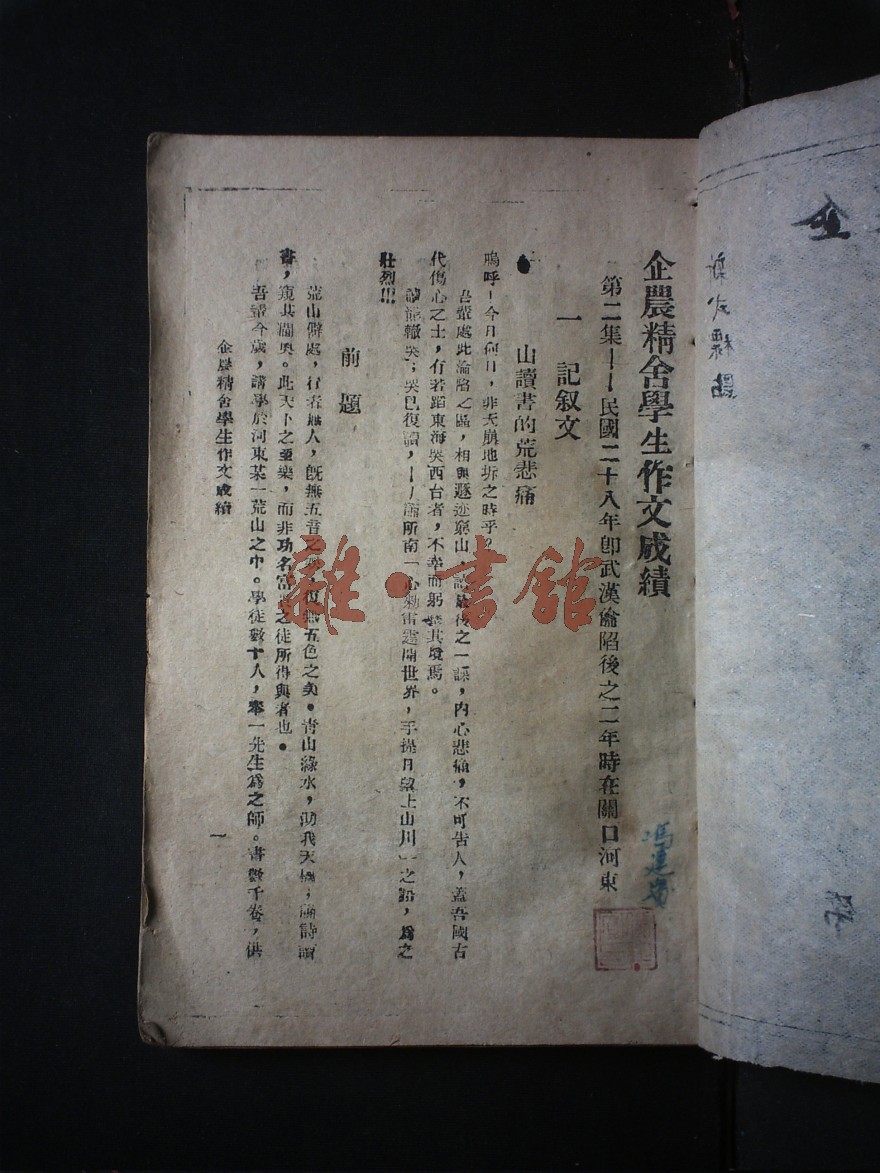 企農精舍學生作文成績
第二集——民國二十八年卽武漢淪陷後之二年時在關口河東
一 記叙文
山讀書的荒悲痛
嗚呼！今日何日，非天崩地坼之時乎？
吾輩處此淪陷之區，相與遯迹窮山，講最後之一課，內心悲痛，不可告人，蓋吾國古
代傷心之士，有若蹈東海哭西台者，不幸而躬 其境焉。
讀罷輒哭；哭已復讀，——所南一心 雷 開世界，手提日 上山川 之 ，爲之
壯烈!!!
前題
荒山僻處，行者無人，旣無五音之 ，復無五色之美。靑山綠水，助我天機；誦詩讀
書，窺其閫奧。此天下之至樂，而非功名富貴之徒所得與者也。
吾輩今歲，講學於河東某一荒山之中。學徒數十人，奉一先生爲之師。書數千卷，供
企農精舍學生作文成績
一
馮
雜·書館